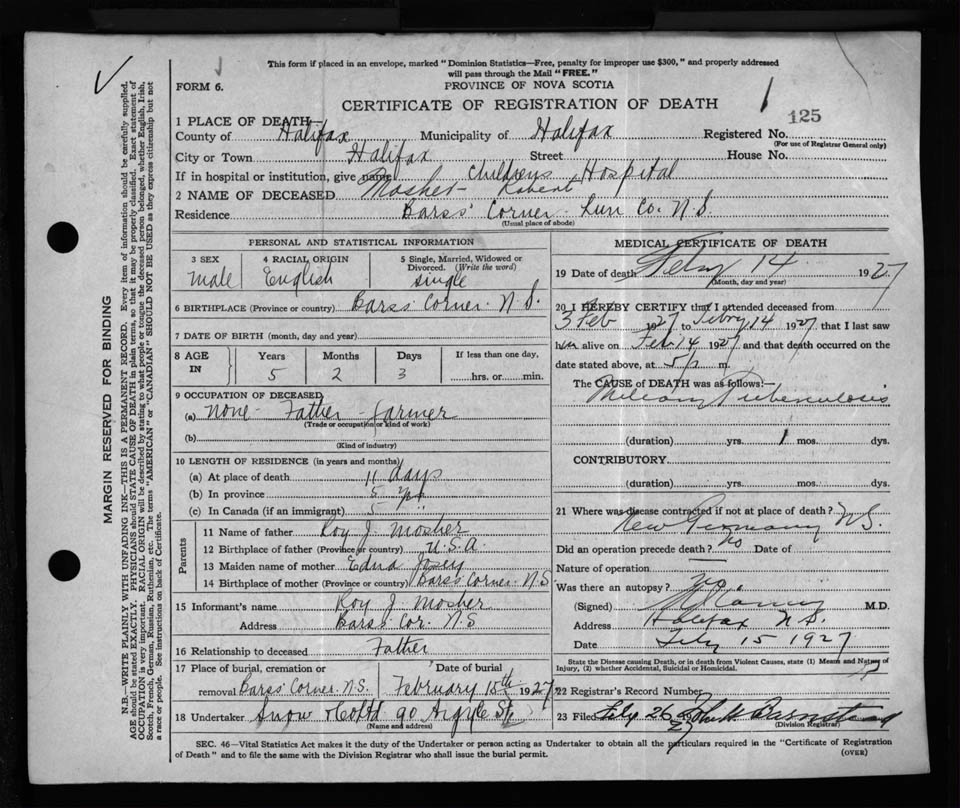 This form if placed in an envelope, marked "Dominion Statistics—Free, penalty for improper use $300," and properly addressed
will pass through the Mail "FREE."
FORM 6.
PROVINCE OF NOVA SCOTIA
CERTIFICATE OF REGISTRATION OF DEATH
1
125
1 PLACE OF DEATH—
County of Halifax Municipality of Halifax Registered No.
(For use of Registrar General only)
City or Town Halifax Street House No.
If in hospital or institution, give name Childrens Hospital
2 NAME OF DECEASED Mosher - Robert
Residence Barss' Corner Lun Co. N.S.
(Usual place of abode)
PERSONAL AND STATISTICAL INFORMATION
3 SEX male
4 RACIAL ORIGIN English
5 Single, Married, Widowed or Divorced. (Write the word) single
6 BIRTHPLACE (Province or country) Barss' Corner. N.S.
7 DATE OF BIRTH (month, day and year)
8 AGE IN
Years Months Days If less than one day,
5 2 3 hrs. or min.
9 OCCUPATION OF DECEASED
(a) none - Father - farmer
(Trade or occupation or kind of work)
(b)
(Kind of industry)
10 LENGTH OF RESIDENCE (in years and months)
(a) At place of death 11 days
(b) In province 5 yrs
(c) In Canada (if an immigrant) 5
Parents
11 Name of father Roy J. Mosher
12 Birthplace of father (Province or country) U.S.A.
13 Maiden name of mother Edna
14 Birthplace of mother (Province or country) Barss' Corner. N.S
15 Informant's name Roy J. Mosher
Address Barss' Cor. N.S
16 Relationship to deceased Father
17 Place of burial, cremation or Date of burial
removal Barss' Corner. N.S. February 15th 1927
18 Undertaker Snow & Co Ltd 90 Argyle St
(Name and address)
MEDICAL CERTIFICATE OF DEATH
19 Date of death Feby 14 1927
(Month, day and year)
20 I HEREBY CERTIFY that I attended deceased from
3 Feb 1927 to Febry 14 1927, that I last saw
him alive on Feb 14 1927 and that death occurred on the
date stated above, at 5 p m.
The CAUSE of DEATH was as follows:—
Miliary Tuberculosis
(duration) yrs. 1 mos. dys.
CONTRIBUTORY
(duration) yrs. mos. dys.
21 Where was disease contracted if not at place of death?
New Germany N.S.
Did an operation precede death? no Date of
Nature of operation
Was there an autopsy? no
(Signed) M.D.
Address Halifax N.S.
Date Feby 15 1927
State the Disease causing Death, or in death from Violent Causes, state (1) Means and Nature of
Injury, (2) whether Accidental, Suicidal or Homicidal.
22 Registrar's Record Number
23 Filed Feby 26 27 John H. Barnstead
(Division Registrar)
SEC. 46—Vital Statistics Act makes it the duty of the Undertaker or person acting as Undertaker to obtain all the particulars required in the "Certificate of Registration
of Death" and to file the same with the Division Registrar who shall issue the burial permit.
(OVER)
MARGIN RESERVED FOR BINDING
N.B.—WRITE PLAINLY WITH UNFADING INK—THIS IS A PERMANENT RECORD. Every item of information should be carefully supplied.
AGE should be stated EXACTLY. PHYSICIANS should STATE CAUSE OF DEATH in plain terms, so that it may be properly classified. Exact statement of
OCCUPATION is very important. RACIAL ORIGIN will be described by stating to what people or tongue the deceased person belonged, whether English, Irish,
Scotch, French, German, Russian, Ruthenian, etc. The terms "AMERICAN" or "CANADIAN" SHOULD NOT BE USED as they express citizenship but not
a race or people. See instructions on back of Certificate.